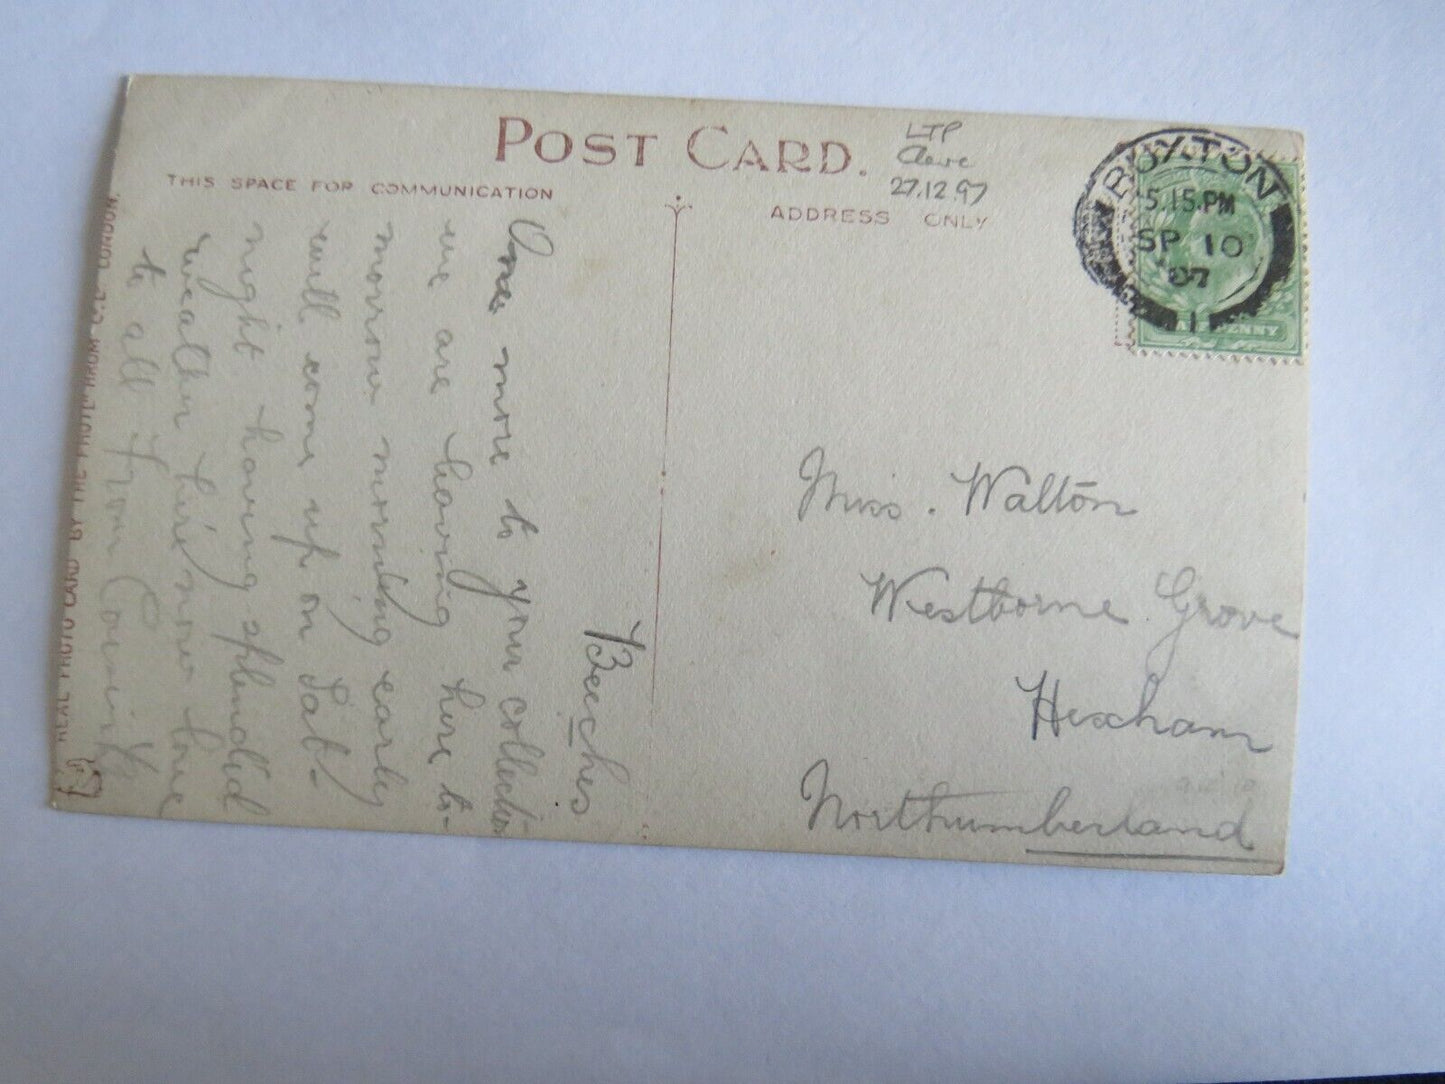 POST CARD.
LTP
Clare
27.12.97
THIS SPACE FOR COMMUNICATION
ADDRESS ONLY
BUXTON
5.15.PM
SP 10
07
1
HALFPENNY
Beeches
One more to your collection
we are having here to-
morrow morning early
will come up on Sat-
night having splendid
weather here now love
to all from
Miss. Walton
Westborne Grove
Hexham
Northumberland
REAL PHOTO CARD BY THE LONDON.